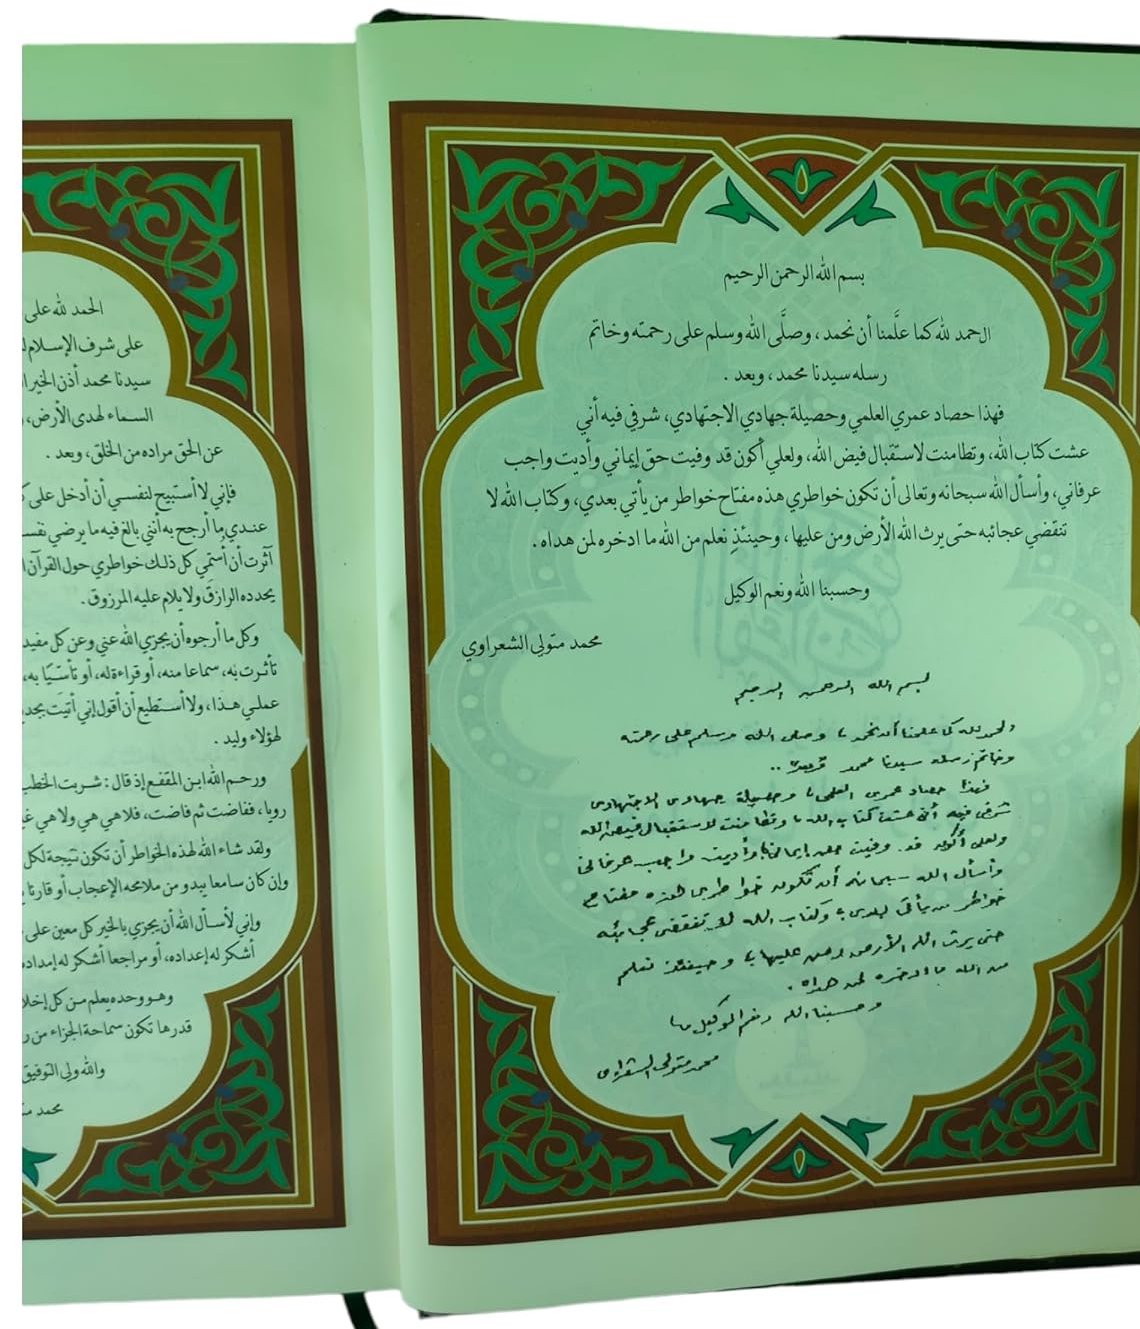 بسم الله الرحمن الرحيم
الحمد لله كما علَّمنا أن نحمد، وصلَّى الله وسلم على رحمته وخاتم
رسله سيدنا محمد، وبعد.
فهذا حصاد عمري العلمي وحصيلة جهادي الاجتهادي، شرفي فيه أني
عشت كتاب الله، وتطامنت لاستقبال فيض الله، ولعلي أكون قد وفيت حق إيماني وأديت واجب
عرفاني، وأسأل الله سبحانه وتعالى أن تكون خواطري هذه مفتاح خواطر من يأتي بعدي، وكتاب الله لا
تنقضي عجائبه حتى يرث الله الأرض ومن عليها، وحينئذٍ نعلم من الله ما ادخره لمن هداه.
وحسبنا الله ونعم الوكيل
محمد متولي الشعراوي
بسم الله الرحمن الرحيم
الحمد لله كما علمنا أن نحمد، وصلى الله وسلم على رحمته
وخاتم رسله سيدنا محمد وبعد..
فهذا حصاد عمرى العلمى، وحصيلة جهادى الاجتهادى
شرفى فيه أنى عشت كتاب الله، وتطامنت لاستقبال فيض الله
ولعلى أكون قد وفيت حق إيمانى، وأديت واجب عرفانى
وأسأل الله سبحانه أن تكون خواطرى هذه مفتاح
خواطر من يأتى بعدى، وكتاب الله لا تنقضى عجائبه
حتى يرث الله الأرض ومن عليها، وحينئذ نعلم
من الله ما ادخره لمن هداه.
وحسبنا الله ونعم الوكيل
محمد متولى الشعراوى
الحمد لله على
على شرف الإسلام
سيدنا محمد أذن الخير
السماء لهدى الأرض،
عن الحق مراده من الخلق، وبعد.
فإني لا أستبيح لنفسي أن أدخل على
عندي ما أرجح به أنني بالغ فيه ما يرضي
آثرت أن أسَمِّي كل ذلك خواطري حول القرآن
يحدده الرازق ولا يلام عليه المرزوق.
وكل ما أرجوه أن يجزي الله عني وعن كل مفيد
تأثرت به، سماعا منه، أو قراءة له، أو تأسّيًا به،
عملي هذا، ولا أستطيع أن أقول إني أتيت بجديد
لهؤلاء وليد.
ورحم الله ابن المقفع إذ قال: شربت الخطب
رويا، ففاضت ثم فاضت، فلا هي هي ولا هي
ولقد شاء الله لهذه الخواطر أن تكون نتيجة لكل
وإن كان سامعا يبدو من ملامحه الإعجاب أو قارئا
وإني لأسأل الله أن يجزي بالخير كل معين على
أشكر له إعداده، أو مراجعا أشكر له
وهو وحده يعلم من كل
قدرها تكون سماحة الجزاء من
والله ولي التوفيق
محمد